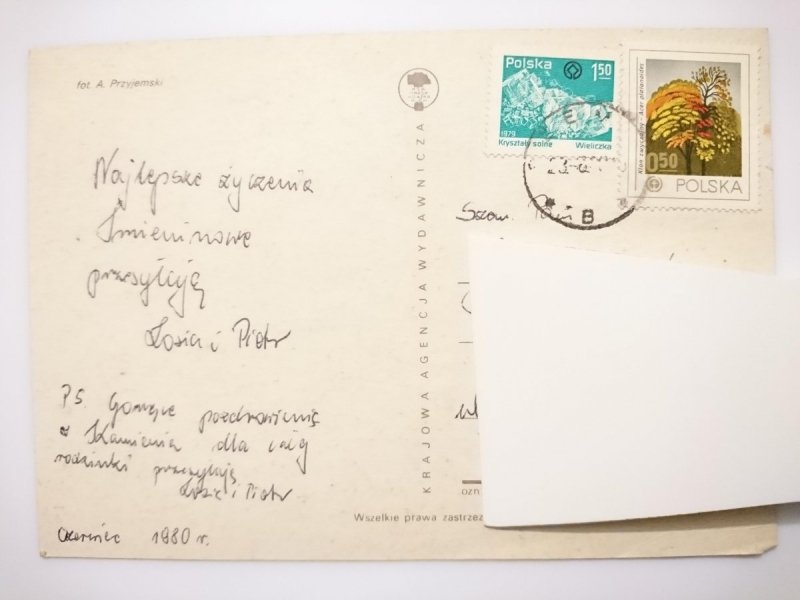 fot. A. Przyjemski
Polska
1,50
1979
Kryształy solne Wieliczka
Klon zwyczajny - Acer platanoides
0,50
POLSKA
B
Najlepsze życzenia
Imieninowe
przesyłają
Zosia i Piotr
PS. Gorące pozdrowienia
z Kamienia dla całej
rodzinki przesyłają
Zosia i Piotr
czerwiec 1980 r.
KRAJOWA AGENCJA WYDAWNICZA
Szan. Pani
ul
ozn
Wszelkie prawa zastrzeż